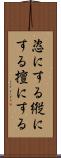 恣にする縦に
する擅にする